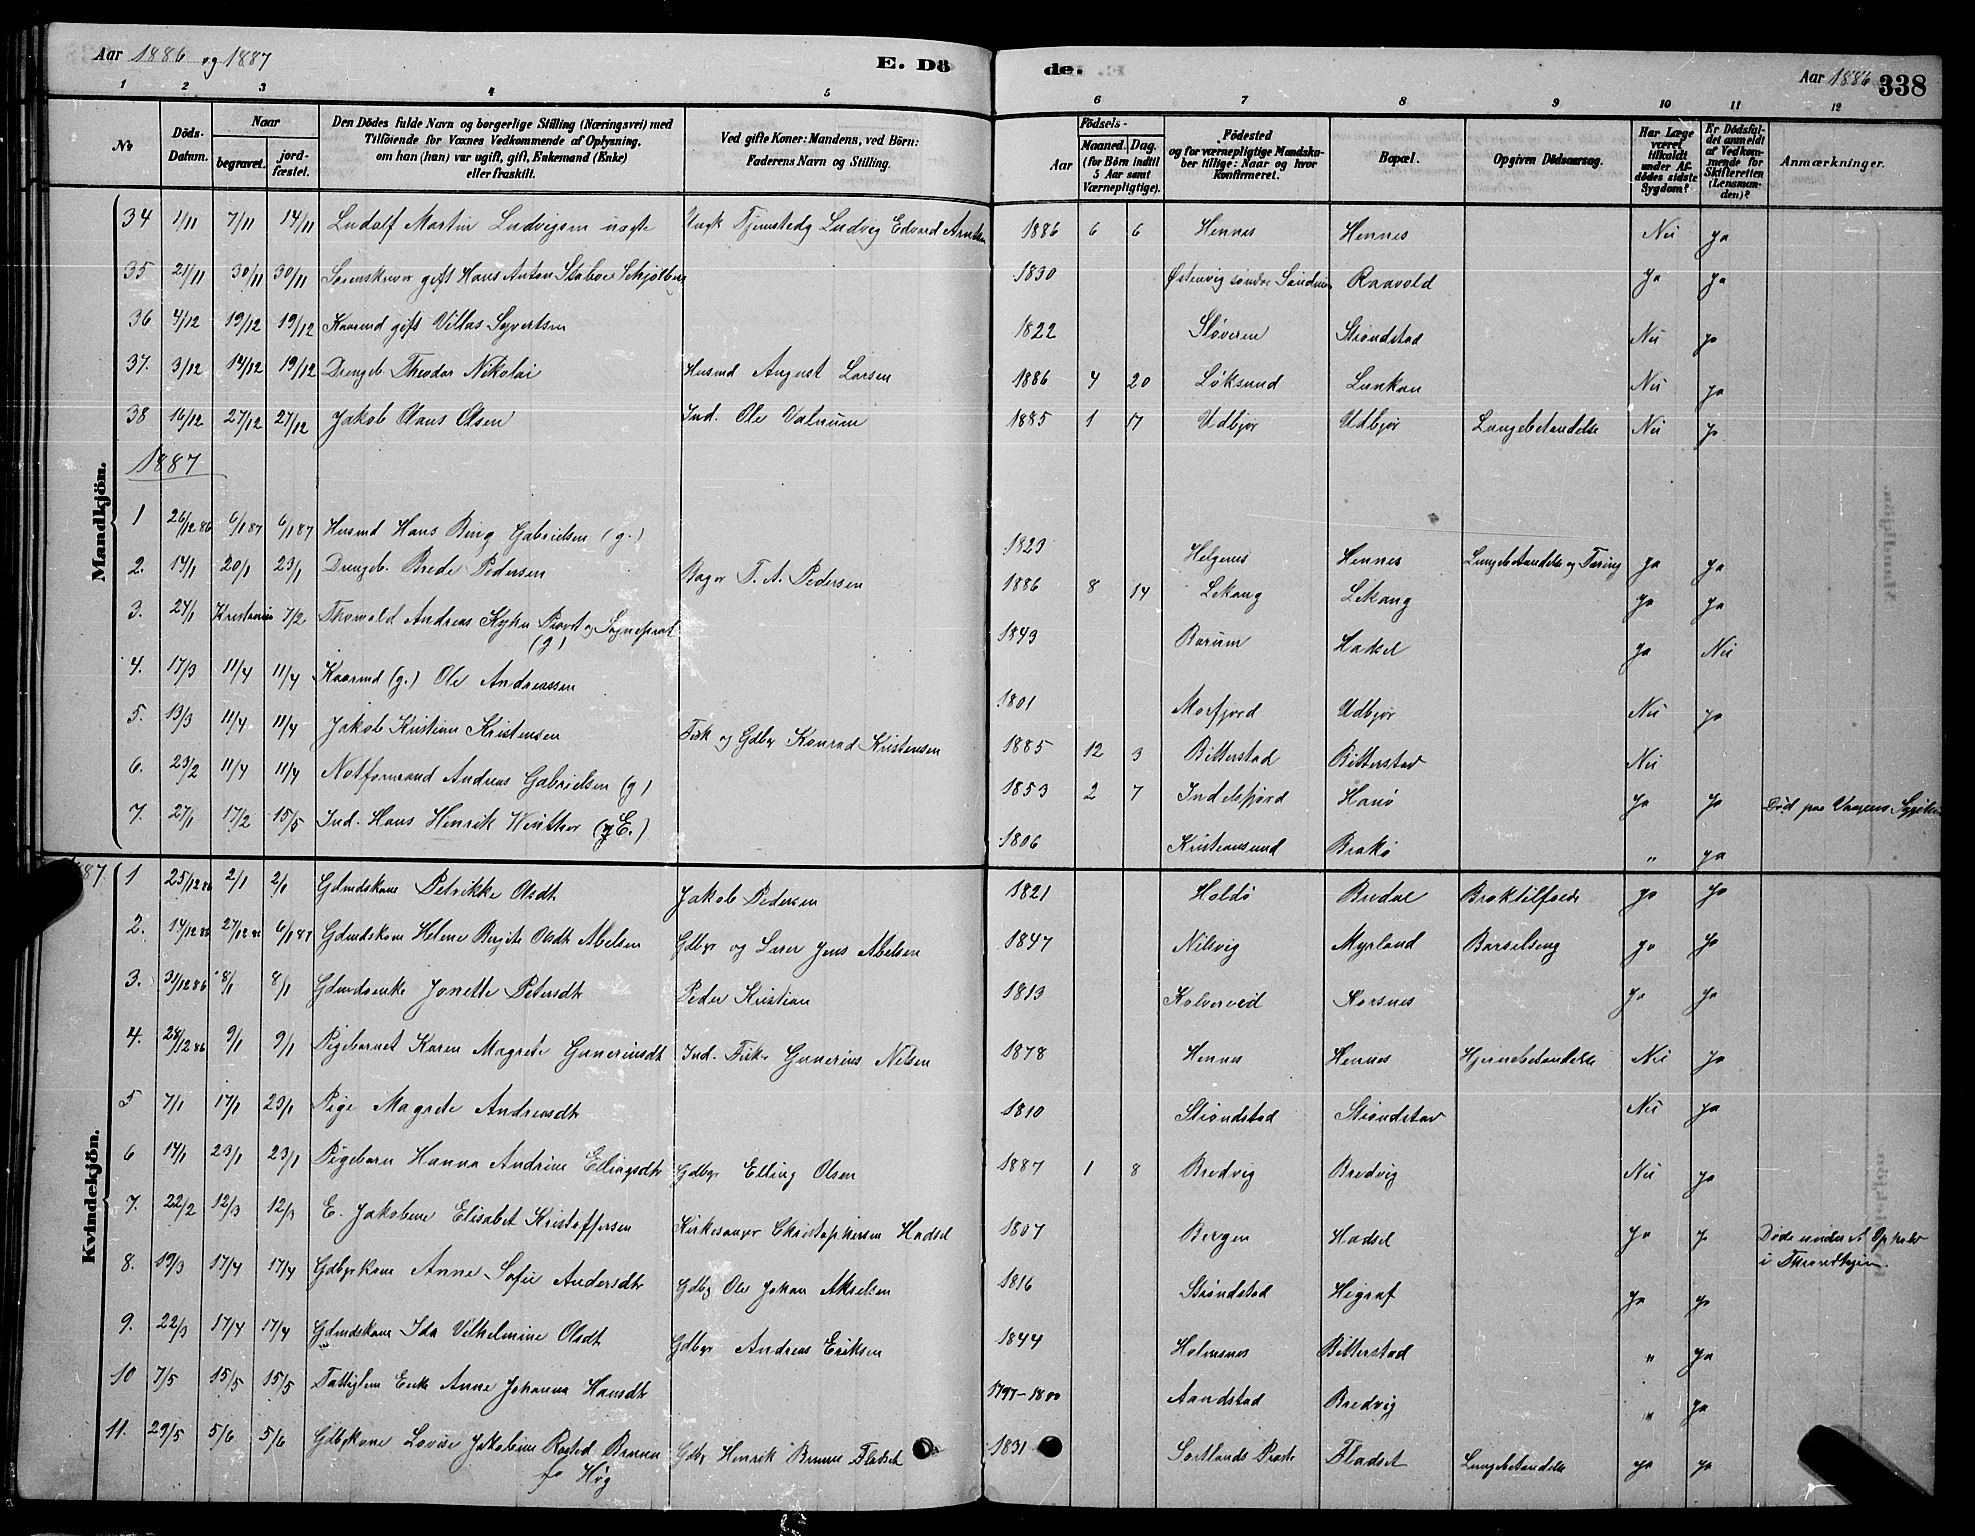 Aar 1886 og 1887
E. Dö
de.
Aar 1886
338
1 2 3 4 5 6 7 8 9 10 11 12
No
Döds-Datum.
Naar
begravet.
jord-fæstet.
Den Dödes fulde Navn og borgerlige Stilling (Næringsvei) med
Tilföiende for Voxnes Vedkommende af Oplysning,
om han (hun) var ugift, gift, Enkemand (Enke)
eller fraskilt.
Ved gifte Koner: Mandens, ved Börn:
Faderens Navn og Stilling.
Födsels-
Aar
Maaned. Dag.
(for Börn indtil
5 Aar samt
Værnepligtige).
Födested
og for værnepligtige Mandska-
ber tillige: Naar og hvor
Konfirmeret.
Bopæl.
Opgiven Dödsaarsag.
Har Læge
været
tilkaldt
under Af-
dödes sidste
Sygdom?
Er Dödsfal-
det anmeldt
af Vedkom-
mende for
Skifteretten
(Lensman-
den)?
Anmærkninger.
Mandkjön.
34 1/11 7/11 14/11 Ludolf Martin Ludvigsen uægte Ungk Tjenestedg Ludvig Edvard 1886 6 6 Hennes Hennes Nei ja
35 21/11 30/11 30/11 Sorenskriver gift Hans Anton Staboe Schjølberg 1830 søndre Raavold ja ja
36 4/12 19/12 19/12 Kaarmd gift Villas Syvertsen 1822 Sløveren Strøndstad Nei ja
37. 3/12 14/12 19/12 Drengeb. Theodor Nikolai Husmd August Larsen 1886 4 20 Løksund Lunkan Nei ja
38 16/12 27/12 27/12 Jakob Olaus Olsen Ind. Ole Valnum 1885 1 17 Udbjør Udbjør Lungebetændelse Nei ja
1887
1 26/12 86 6/1 87 6/1 87 Husmd Hans Bing Gabrielsen (g.) 1823 Helgenes Hennes Lungebetændelse og Tæring ja ja
2. 14/1 20/1 23/1 Drengeb. Brede Pedersen Bager T. A. Pedersen 1886 8 14 Lekang Lekang ja ja
3. 24/1 Kristiania 7/2 Thorvald Andreas Kyhn Provst og Sogneprest (g) 1843 Bærum Hadsel ja Nei
4. 17/3 11/4 11/4 Kaarmd (g.) Ole Andreassen 1801 Morfjord Udbjør Nei ja
5. 13/3 11/4 11/4 Jakob Kristian Kristensen Fisk og Gdbr Konrad Kristensen 1885 12 3 Bitterstad Bitterstad Nei
6. 23/2 11/4 11/4 Notformand Andreas Gabrielsen (g) 1853 2 7 Indelsfjord Hanø ja ja Død paa Vaagens Sygehus
7. 27/1 17/2 15/5 Ind. Hans Henrik Winther (E.) 1806 Kristiansund Brakø " ja
Kvindekjön.
87 1 25/12 86 2/1 2/1 Gdmdskone Petrikke Olsdt Jakob Pedersen 1821 Holdø Bredal Braktilfælde ja ja
2. 14/12 86 27/12 86 6/1 87 Gdmdskone Helene Birgite Olsdt Abelsen Gdbgr og Lærer Jens Abelsen 1847 Nilsvig Myrland Barselseng ja ja
3. 31/12 86 8/1 8/1 Gdmdsenke Jonette Petersdt Peder Kristian 1813 Kolvereid Korsnes ja ja
4. 28/12 86 9/1 9/1 Pigebarnet Karen Magrete Guneriusdt Ind. Fisk. Gunerius Nilsen 1878 Hennes Hennes Hjernebetændelse Nei ja
5 7/1 17/1 23/1 Pige Magrete Andreasdt 1810 Strøndstad Strøndstad Nei ja
6 14/1 23/1 23/1 Pigebarn Hanna Andrine Ellingsdt Gdbgr Elling Olsen 1887 1 8 Bredvig Bredvig Nei ja
7. 22/2 12/3 12/3 E. Jakobine Elisabet Kristoffersen Kirkesanger Christophersen Hadsel 1807 Bergen Hadsel ja ja Døde under et Ophold
i Throndhjem.
8. 19/3 17/4 17/4 Gdbgrkone Anne Sofie Andersdt Gdbg Ole Johan Akselsen 1816 Strøndstad Higraf ja ja
9. 22/3 17/4 17/4 Gdmdskone Ida Vilhelmine Olsdt Gdbgr Andreas Eriksen 1844 Holmsnes Bitterstad " ja
10 7/5 15/5 15/5 Fattiglem Enke Anne Johanna Hansdt 1797-1800 Aandstad Bredvig " ja
11. 29/5 5/6 5/6 Gdbgkone Lovise Jakobine Rosted Bruun Gdbr Henrik Bruun Fladset 1831 Sortlands Præst Fladset Lungebetændelse ja ja
fø Høg